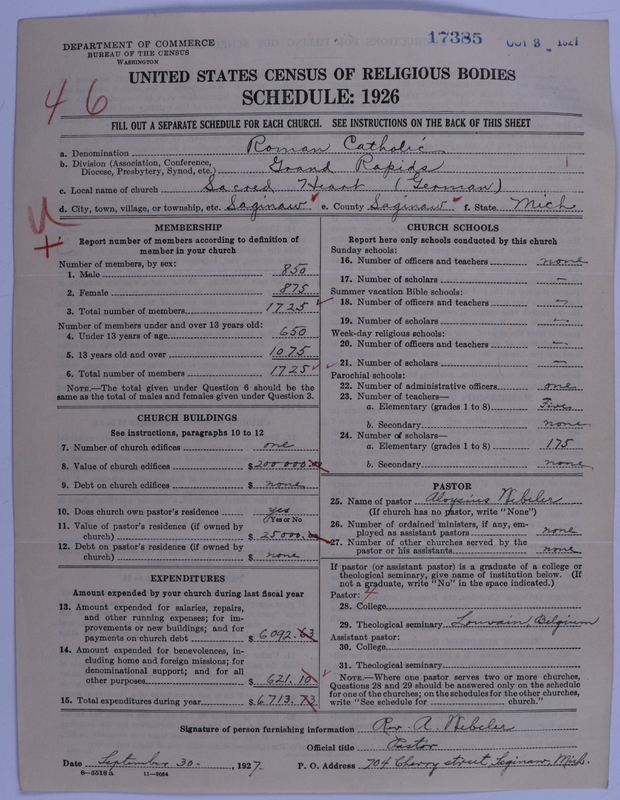 DEPARTMENT OF COMMERCE
BUREAU OF THE CENSUS
WASHINGTON
17385
OCT 3 - 1927
UNITED STATES CENSUS OF RELIGIOUS BODIES
SCHEDULE: 1926
46
FILL OUT A SEPARATE SCHEDULE FOR EACH CHURCH. SEE INSTRUCTIONS ON THE BACK OF THIS SHEET
a. Denomination Roman Catholic
b. Division (Association, Conference, Diocese, Presbytery, Synod, etc.) Grand Rapids
c. Local name of church Sacred Heart (German)
d. City, town, village, or township, etc. Saginaw e. County Saginaw f. State Mich
MEMBERSHIP
Report number of members according to definition of
member in your church
Number of members, by sex:
1. Male 850
2. Female 875
3. Total number of members 1725
Number of members under and over 13 years old:
4. Under 13 years of age 650
5. 13 years old and over 1075
6. Total number of members 1725
NOTE.—The total given under Question 6 should be
same as the total of males and females given under Question 3.
CHURCH BUILDINGS
See instructions, paragraphs 10 to 12
7. Number of church edifices one
8. Value of church edifices $200 000.00
9. Debt on church edifices $ none
10. Does church own pastor's residence yes
Yes or No
11. Value of pastor's residence (if owned by
church) $ 25000.00
12. Debt on pastor's residence (if owned by
church) $ none
EXPENDITURES
Amount expended by your church during last fiscal year
13. Amount expended for salaries, repairs,
and other running expenses; for im-
provements or new buildings; and for
payments on church debt $ 6092.63
14. Amount expended for benevolences, in-
cluding home and foreign missions; for
denominational support; and for all
other purposes $ 621.10
15. Total expenditures during year $ 6713.73
CHURCH SCHOOLS
Report here only schools conducted by this church
Sunday schools:
16. Number of officers and teachers none
17. Number of scholars -
Summer vacation Bible schools:
18. Number of officers and teachers -
19. Number of scholars -
Week-day religious schools:
20. Number of officers and teachers -
21. Number of scholars -
Parochial schools:
22. Number of administrative officers one
23. Number of teachers—
a. Elementary (grades 1 to 8) Five
b. Secondary none
24. Number of scholars—
a. Elementary (grades 1 to 8) 175
b. Secondary none
PASTOR
25. Name of pastor Aloysius Nebeler
(If church has no pastor, write "None")
26. Number of ordained ministers, if any, em-
ployed as assistant pastors none
27. Number of other churches served by the
pastor or his assistants none
If pastor (or assistant pastor) is a graduate of a college or
theological seminary, give name of institution below. (If
not a graduate, write "No" in the space indicated.)
Pastor:
28. College
29. Theological seminary Louvain, Belgium
Assistant pastor:
30. College
31. Theological seminary
NOTE.—Where one pastor serves two or more churches,
Questions 28 and 29 should be answered only on the schedule
for one of the churches; on the schedules for the other churches,
write "See schedule for church."
Signature of person furnishing information Rev. A. Nebeler
Official title Pastor
Date September 30 -, 1927. P. O. Address 704 Cherry street Saginaw, Mich.
8—5518 a 11—9054